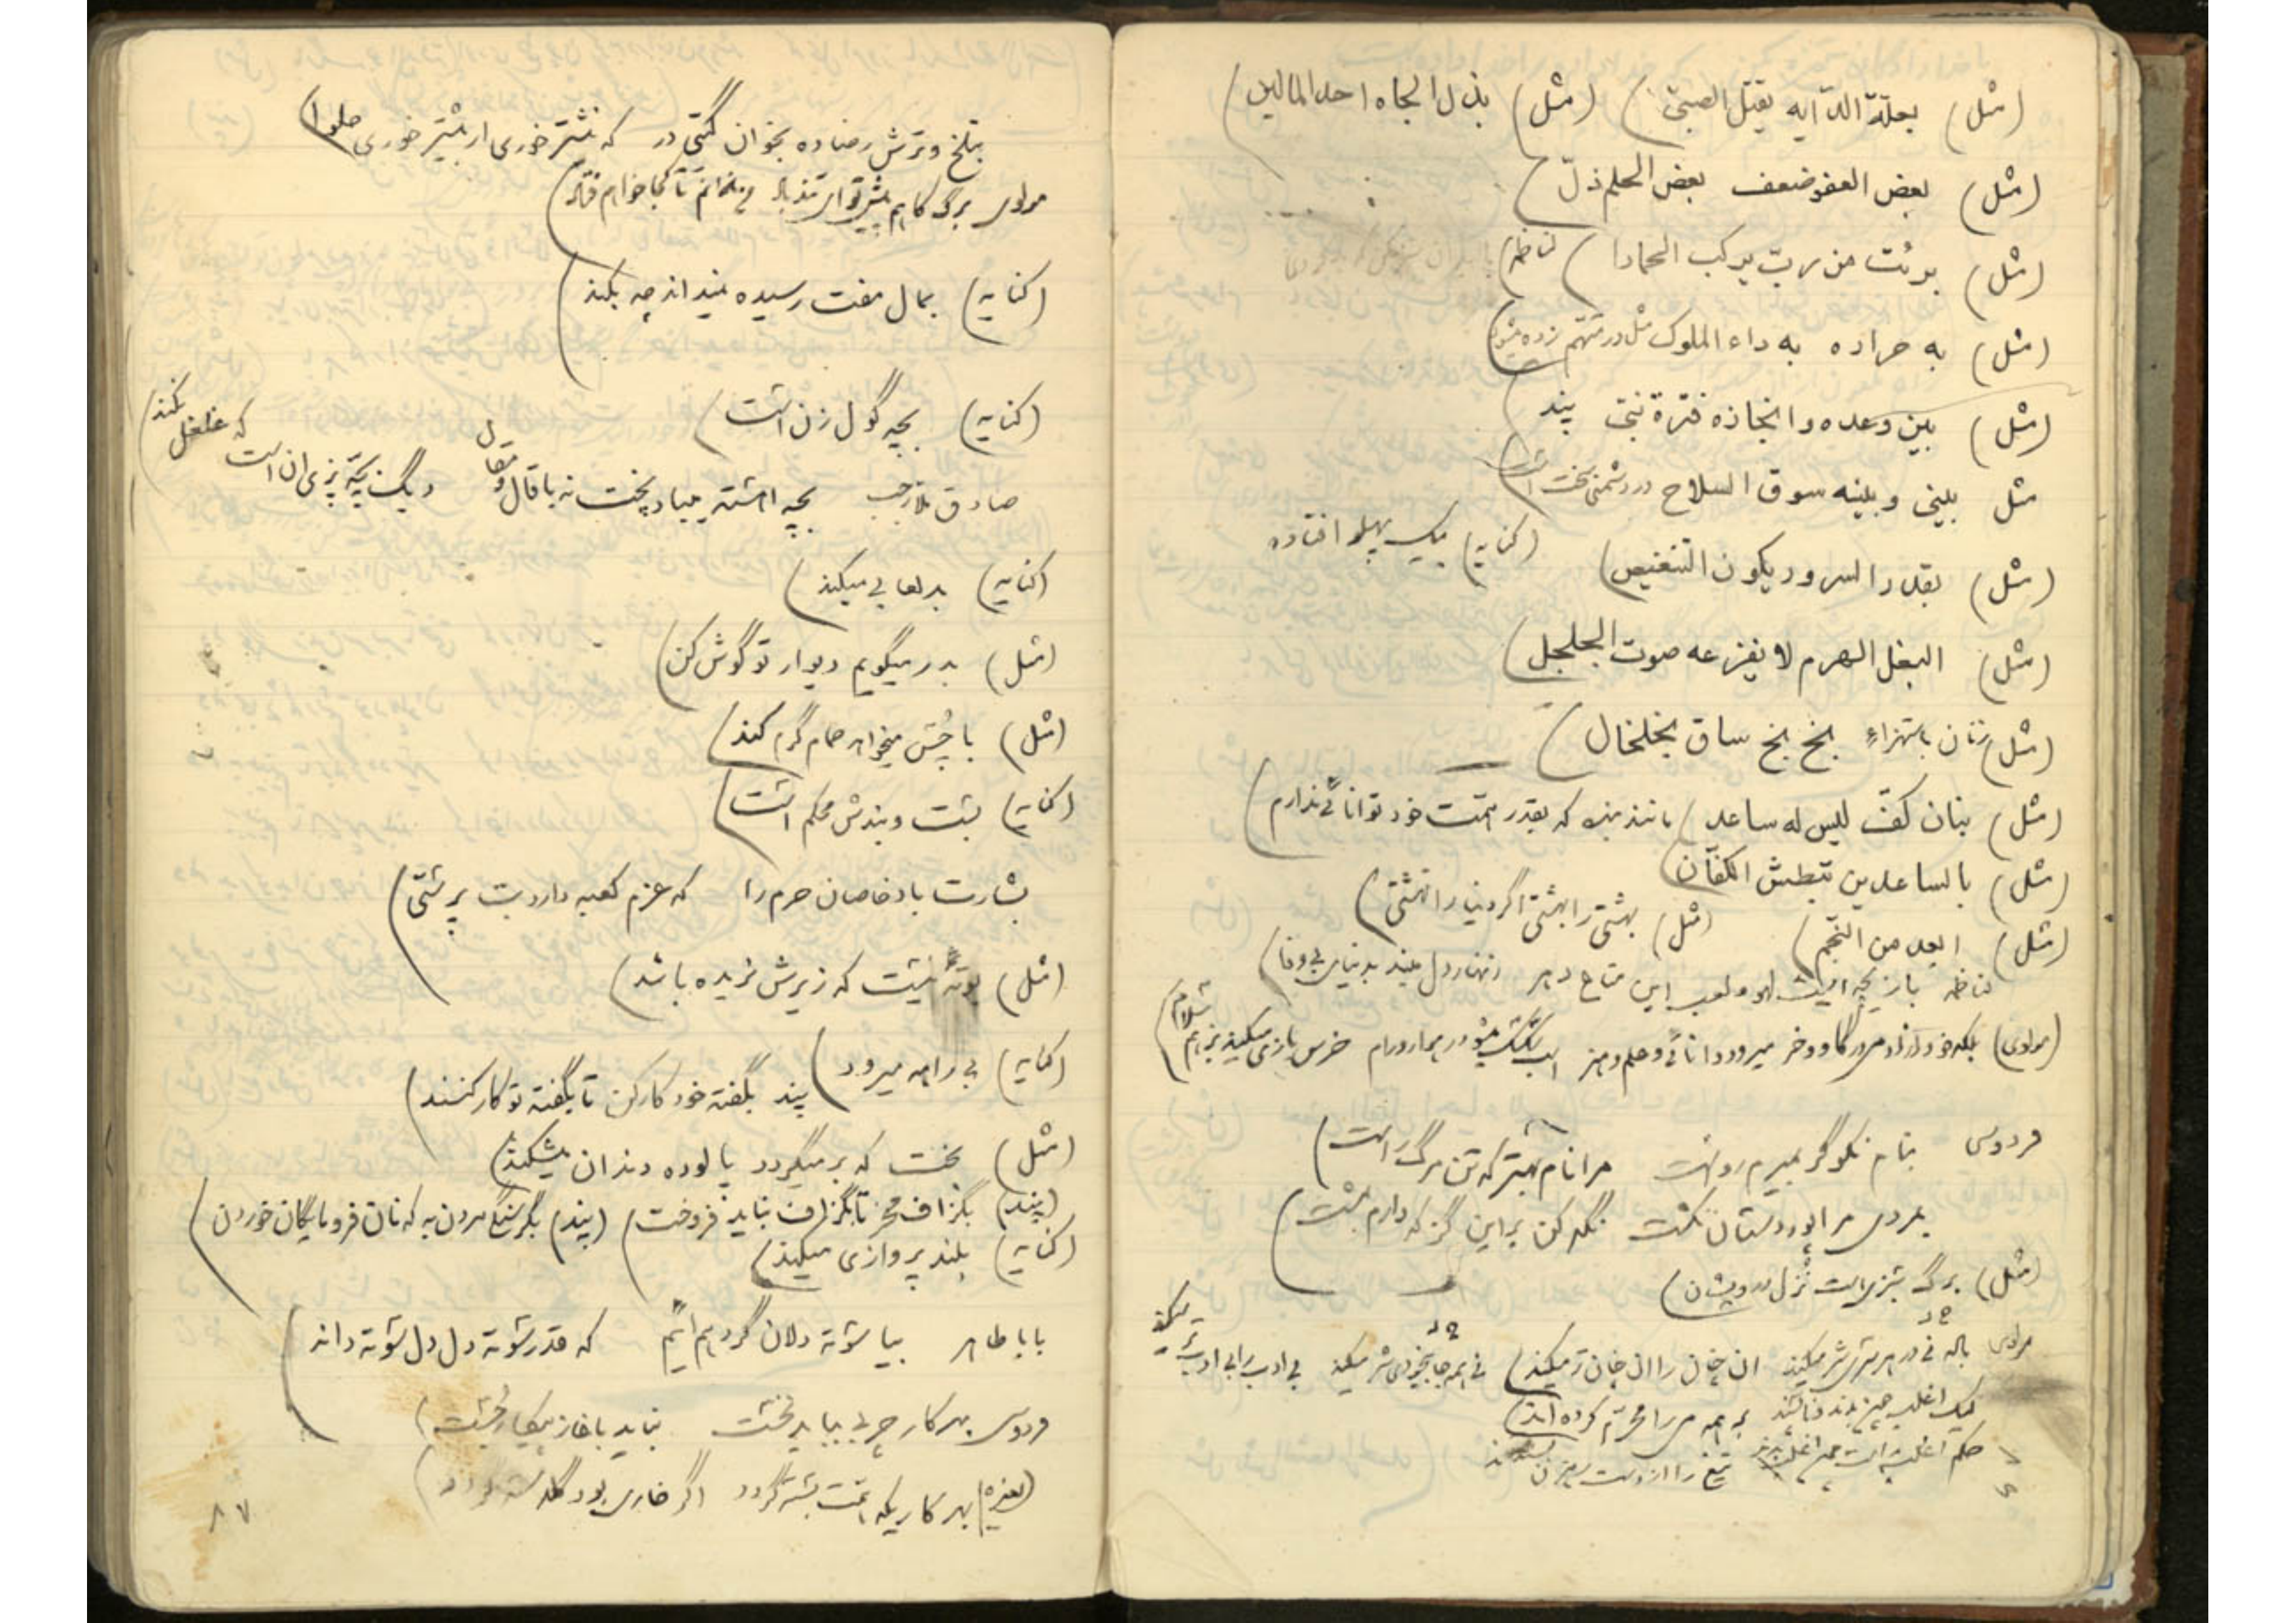 (مثل) بعلة الدایه یقتل الصبی) (مثل) بذل الجاه احد المالین)
(مثل) بعض العفو ضعف بعض الحلم ذلّ)
(مثل) برئت من ربّ یرکب الحمارا) لناظمه)
(مثل) به حراده به داء الملوک مثل در متهم زده میشود)
(مثل) بین وعده و انجازه فترة نبی پند
مثل بینی و بینه سوق السلاح در دشمنی سخت است)
(مثل) بقدر السرور یکون التنغیص) (کنایه) بیک پهلو افتاده
(مثل) البغل الهرم لا یفزعه صوت الجلجل)
(مثل) زنان باستهزاء بخ بخ ساق بخلخال)
(مثل) بنان کفّ لیس له ساعد) مانند بنده که بقدر همت خود توانائی ندارم)
(مثل) بالساعدین تبطش الکفّان)
(مثل) ابعد من النجم) (مثل) بهشتی را بهشتی اگر دنیا را نهشتی)
لناظمه بازیچه ایست لهو و لعب این متاع دهر زنهار دل مبند بدنیای بی وفا)
(مولوی) خر میرود دانائی و علم و هنر خرس بازی میکنید بر هم
فردوسی بنام نکو گر بمیرم رواست مرا نام بهتر که تن مرگ راست)
بمردی مرا پور دستان نکشت نگه کن بر این گز که دارم بمشت)
(مثل) برگ سبزیست نزل درویشان)
مولوی باده نی در هر سری شر میکند ان چنان را ان چنان تر میکند)
نی همه جا بیخودی شر میکند بی ادب را بی ادب تر میکند
لیک اغلب چون بدند و ناپسند بر همه می را محرّم کرده اند)
حکم اغلب راست چون اغلب بدند تیغ را از دست رهزن بستدند
بتلخ و ترش رضا ده بخوان گیتی در که نیشتر خوری ار بیشتر خوری حلوا)
مولوی برگ کاهم پیش تو ای تند باد من ندانم تا کجا خواهم فتاد)
(کنایه) بمال مفت رسیده نمیداند چه بکند)
(کنایه) بچه گول زن است)
صادق ملارجب بچه اشته میباد پخت نه با قال و مقال دیگ بچه پزی ان است که غلغل نکند)
(کنایه) بد لعابی میکند)
(مثل) بدر میگویم دیوار تو گوش کن)
(مثل) با چسش میخواهد حمام گرم کند)
(کنایه) پشت و بندش محکم است)
بشارت باد خاصان حرم را که عزم کعبه دارد بت پرستی)
(مثل) بوته نیست که زیرش نریده باشد)
(کنایه) بی راهه میرود) پند بگفته خود کار کن تا بگفته تو کار کنند)
(مثل) بخت که برمیگردد پالوده دندان میشکند)
(پند) بگزاف مخر تا بگزاف نباید فروخت) (پند) بگرسنگی مردن به که نان فرومایگان خوردن)
(کنایه) بلند پروازی میکند)
بابا طاهر بیا سوته دلان گرد هم آئیم که قدر سوته دل دل سوته داند)
فردوسی بهر کار چربی بباید نخست نباید باغاز پیکار جست)
(لغیره) بهر کاریکه همت بسته گردد اگر خاری بود گلدسته گردد)
۸۷